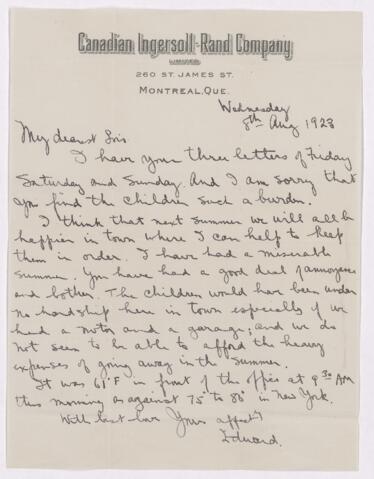 Canadian Ingersoll-Rand Company
LIMITED
260 ST. JAMES ST.
MONTREAL, QUE.
Wednesday
8th Aug 1928
My dearest
I have your three letters of Friday
Saturday and Sunday. And I am sorry that
you find the children such a burden.
I think that next summer we will all be
happier in town where I can help to keep
them in order. I have had a miserable
summer. You have had a good deal of annoyance
and bother. The children would have been under
no hardship here in town especially if we
had a motor and a garage; and we do
not seem to be able to afford the heavy
expenses of going away in the summer.
It was 61°F in front of the office at 9 30 AM
this morning as against 75° to 80° in New York.
With best love Yours affect'y
Edward.